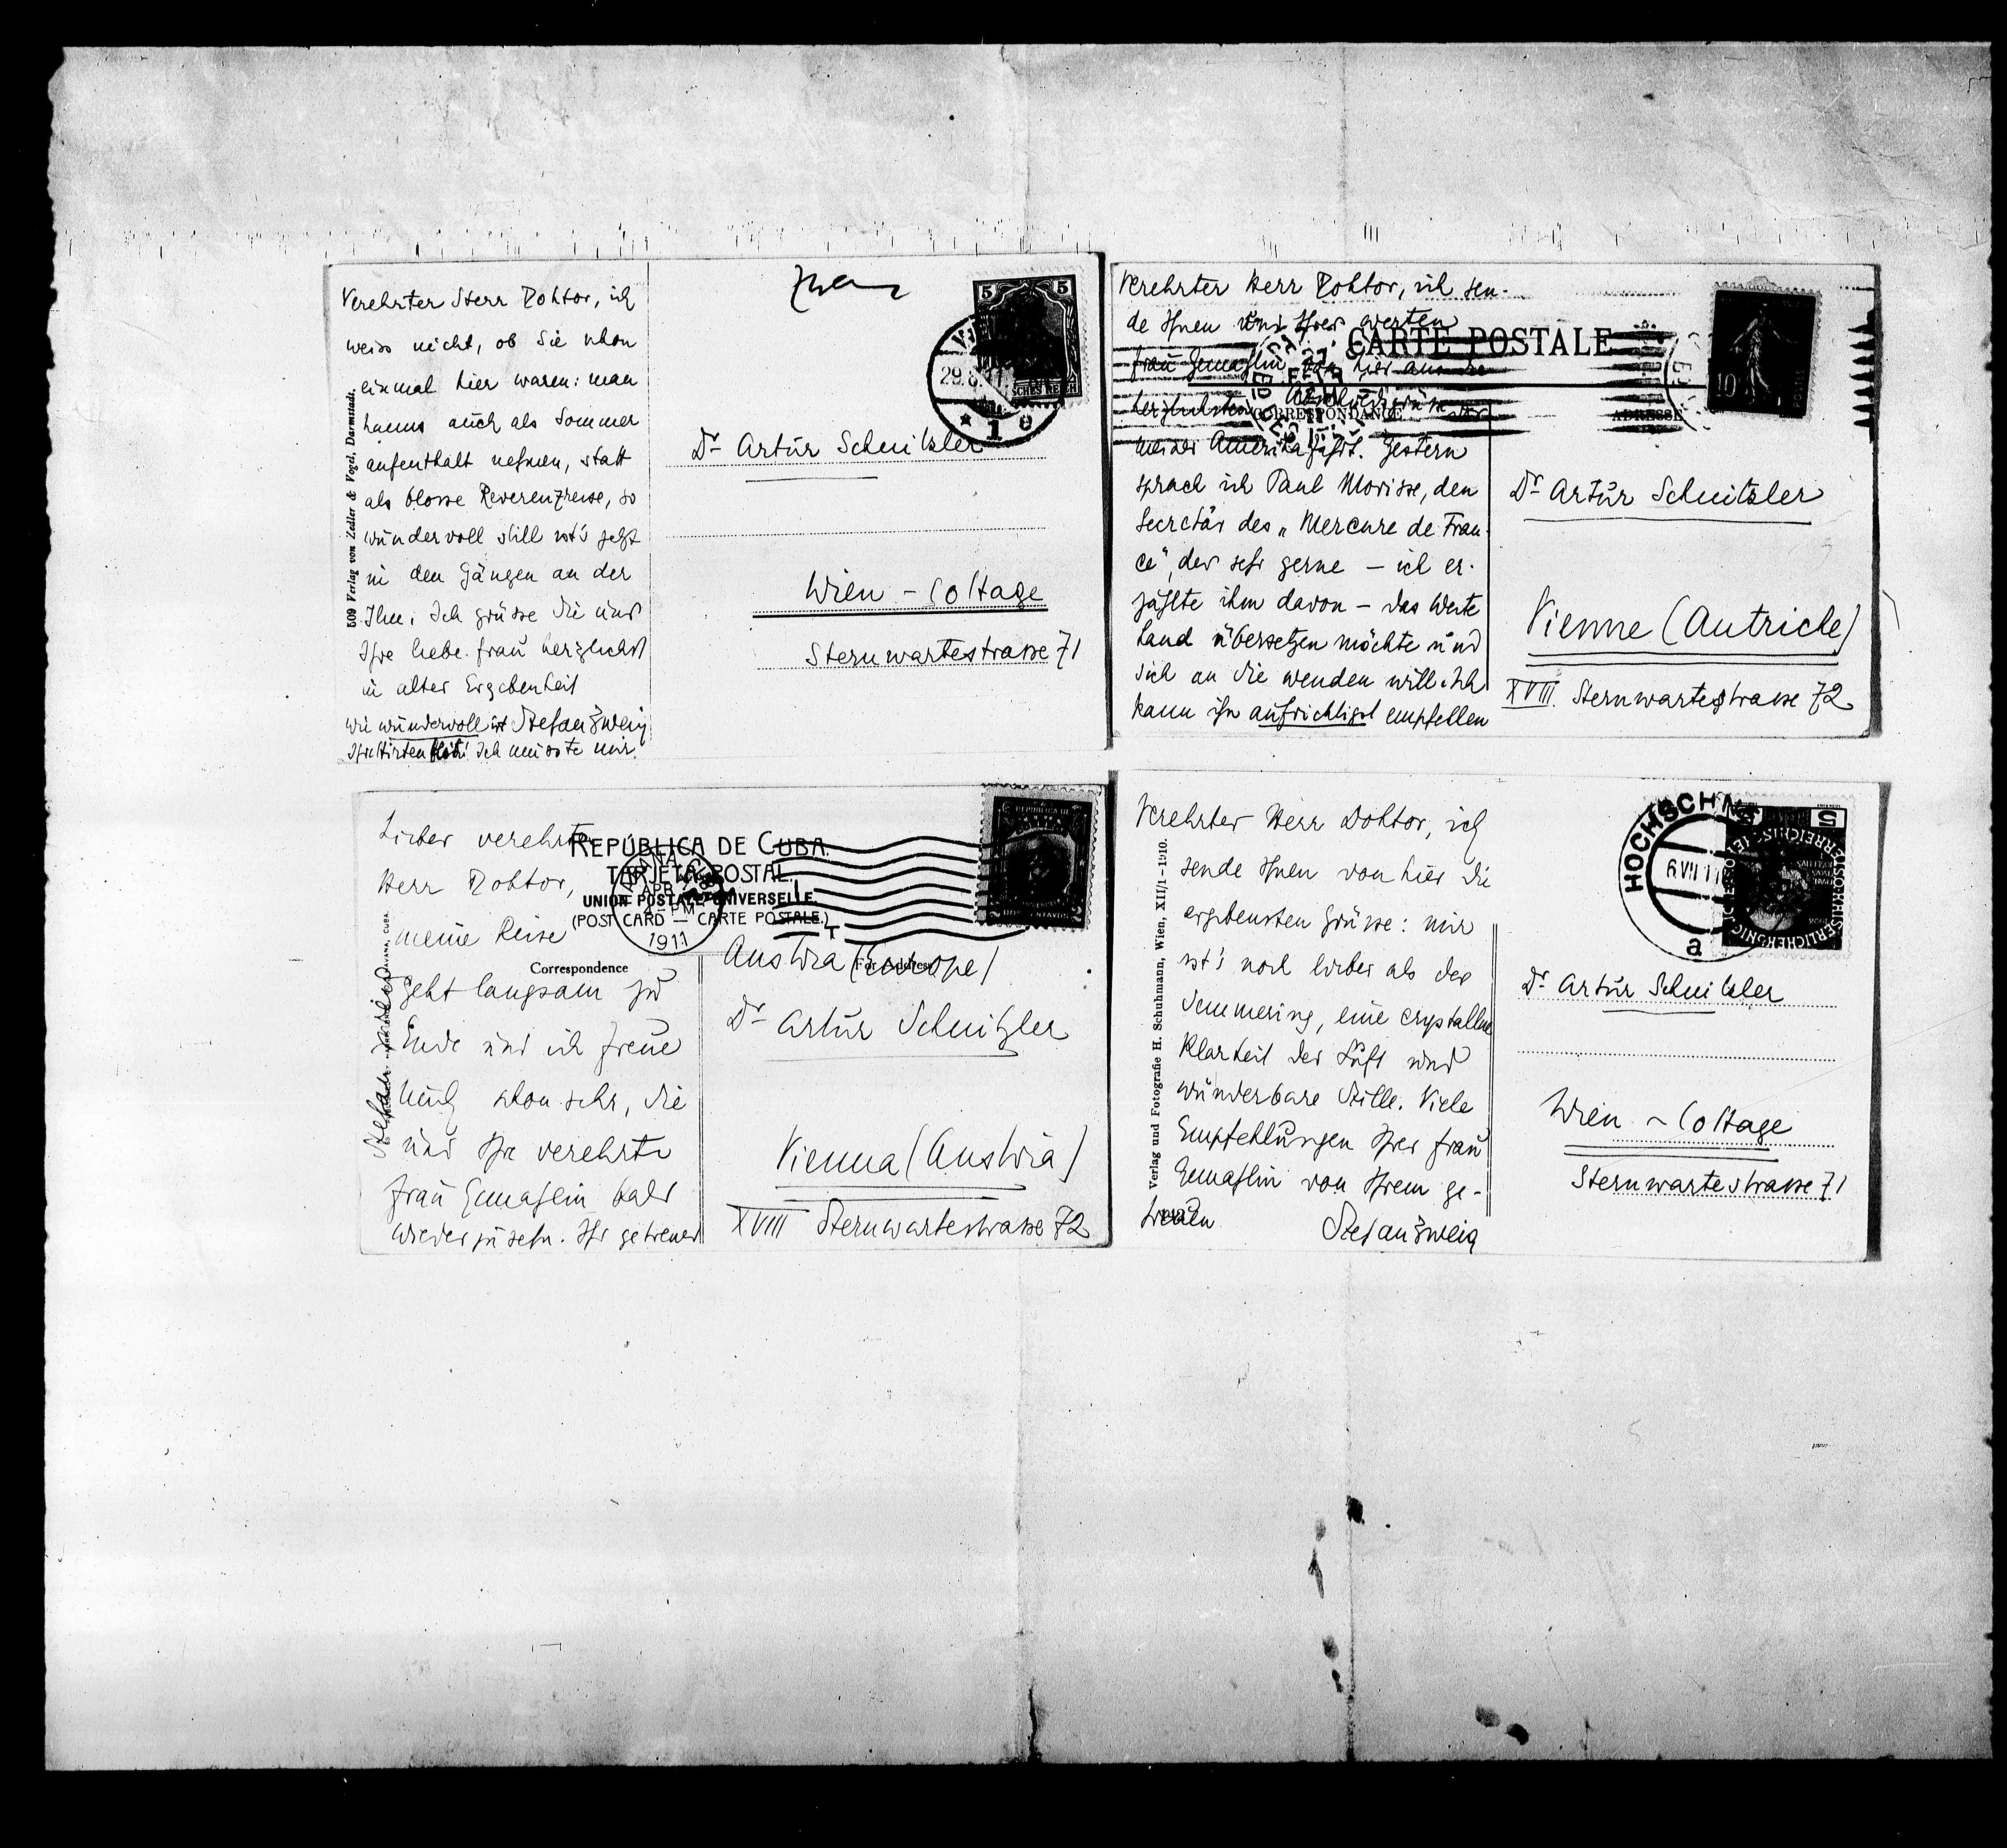 Verehrter Herr Doktor, ich
weiss nicht, ob Sie schon
einmal hier waren: man
kanns auch als Sommer
aufenthalt nehmen, statt
als blosse Reverenzreise, so
wundervoll still ist's jetzt
in den Gängen an der
Ilm. Ich grüsse Sie und
Ihre liebe Frau herzlichst
in alter Ergebenheit
Stefan Zweig
Wie wundervoll ist
Ihre Hirtenflöte! Ich musste mir
509 Verlag von Zedler & Vogel, Darmstadt.
5 5
29.8.
1
Dr Artur Schnitzler
Wien - Cottage
Sternwartestrasse 71
Verehrter Herr Doktor, ich sen-
de Ihnen und Ihrer werten
Frau Gemahlin von hier aus die
herzlichsten Abschiedsgrüsse vor
meiner Amerikafahrt. Gestern
sprach ich Paul Morisse, den
Secretär des „Mercure de Fran-
ce", der sehr gerne – ich er-
zählte ihm davon – das Weite
Land übersetzen möchte und
sich an Sie wenden will. Ich
kann ihn aufrichtigst empfehlen
CARTE POSTALE
CORRESPONDANCE
ADRESSE
10
Dr Artur Schnitzler
Vienne (Autriche)
XVIII. Sternwartestrasse 72
Lieber verehrter
Herr Doktor,
meine Reise
geht langsam zu
Ende und ich freue
mich schon sehr, Sie
und Ihre verehrte
Frau Gemahlin bald
wieder zu sehn. Ihr getreuer
Stefan Zweig
REPÚBLICA DE CUBA.
TARJETA POSTAL.
UNION POSTALE UNIVERSELLE.
(POST CARD — CARTE POSTALE.)
HABANA
APR
PM
1911
T
Correspondence
For Address
Austria (Europe)
Dr Artur Schnitzler
Vienna (Austria)
XVIII Sternwartestrasse 72
Verehrter Herr Doktor, ich
sende Ihnen von hier die
ergebensten Grüsse: mir
ist's noch lieber als der
Semmering, eine crystallne
Klarheit der Luft und
wunderbare Stille. Viele
Empfehlungen Ihrer Frau
Gemahlin von Ihrem ge-
treuen
Stefan Zweig
Verlag und Fotografie H. Schuhmann, Wien, XII/1-1910.
HOCHSCHNE
6 VII 11
a
5
Dr Artur Schnitzler
Wien - Cottage
Sternwartestrasse 71